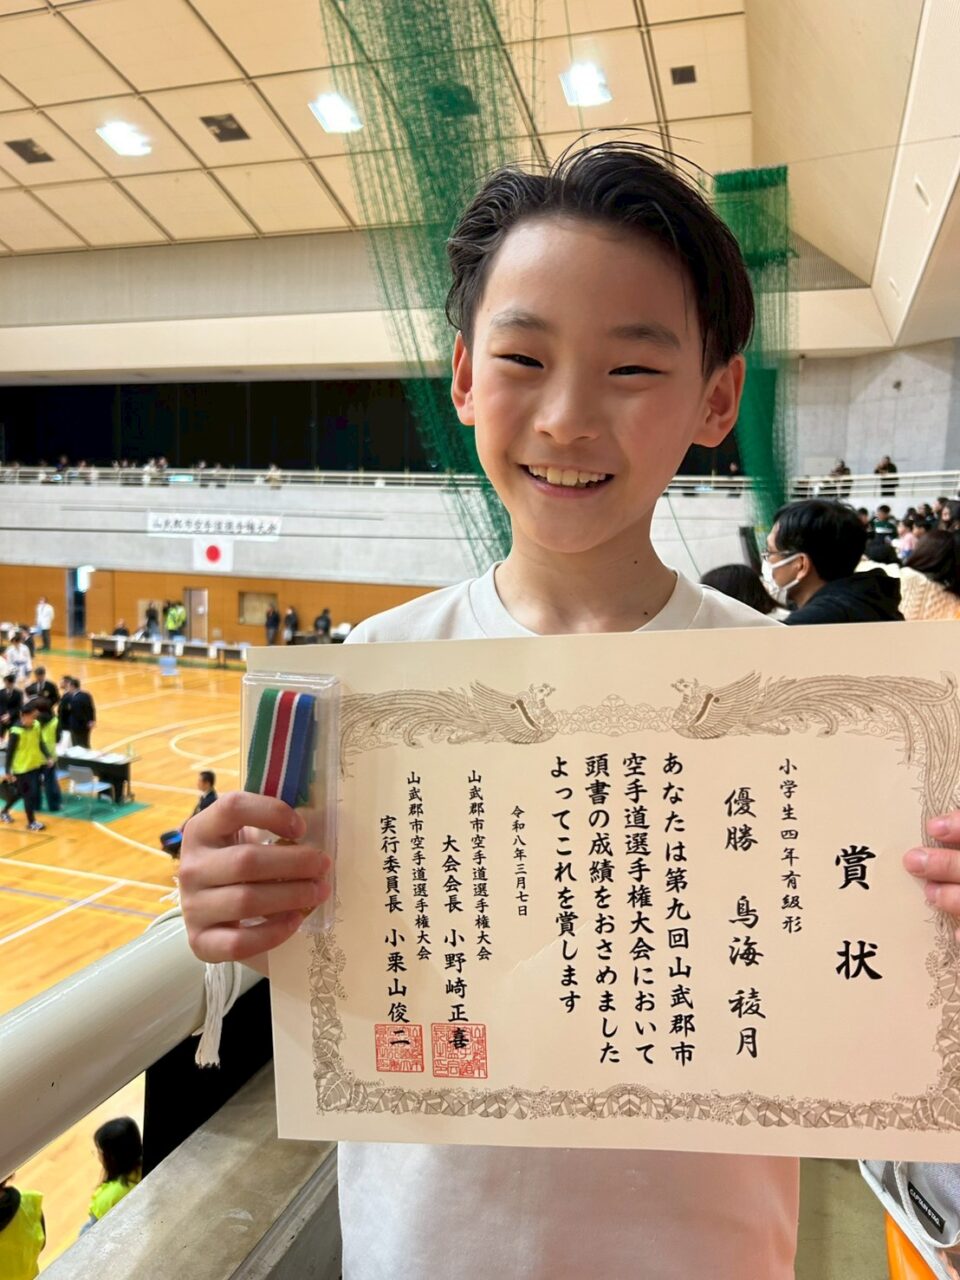 賞状
小学生四年有級形
優勝 鳥海稜月
あなたは第九回山武郡市
空手道選手権大会において
頭書の成績をおさめました
よってこれを賞します
令和八年三月七日
山武郡市空手道選手権大会
大会会長 小野崎正喜
山武郡市空手道選手権大会
実行委員長 小栗山俊二
山武郡市空手道選手権大会
CAPTAIN STAG